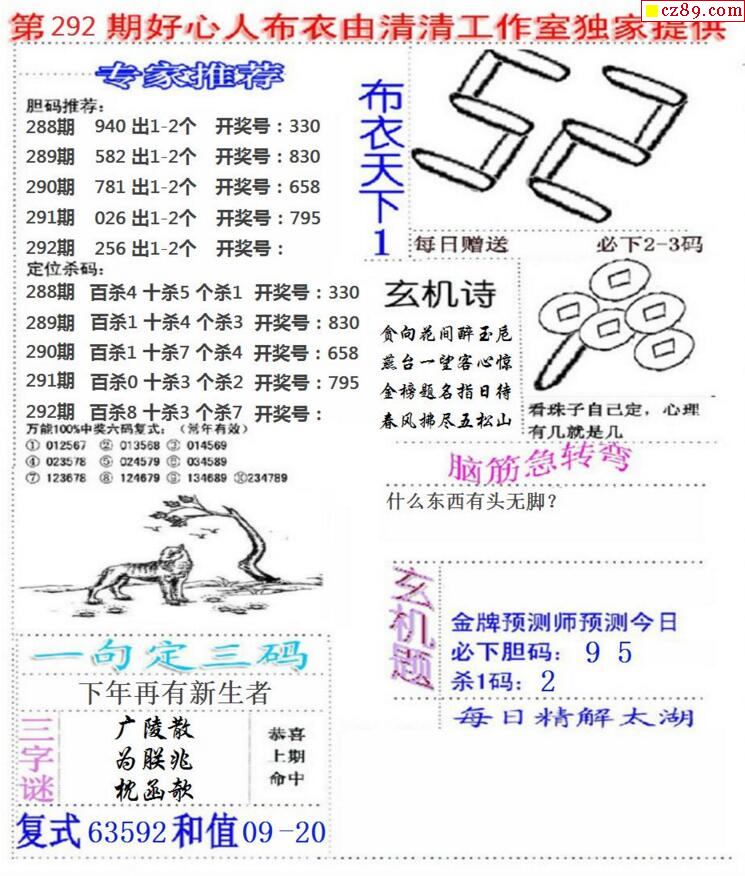 第 292 期好心人布衣由清清工作室独家提供
cz89.com
专家推荐
胆码推荐：
288期 940 出1-2个 开奖号：330
289期 582 出1-2个 开奖号：830
290期 781 出1-2个 开奖号：658
291期 026 出1-2个 开奖号：795
292期 256 出1-2个 开奖号：
定位杀码：
288期 百杀4 十杀5 个杀1 开奖号：330
289期 百杀1 十杀4 个杀3 开奖号：830
290期 百杀1 十杀7 个杀4 开奖号：658
291期 百杀0 十杀3 个杀2 开奖号：795
292期 百杀8 十杀3 个杀7 开奖号：
万能100%中奖六码复式：（常年有效）
① 012567 ② 013568 ③ 014569
④ 023578 ⑤ 024579 ⑥ 034589
⑦ 123678 ⑧ 124679 ⑨ 134689 ⑩234789
一句定三码
下年再有新生者
三字谜
广陵散
为朕兆
枕函欹
恭喜
上期
命中
复式 63592 和值 09-20
布衣天下1
52
每日赠送 必下2-3码
玄机诗
贪向花间醉玉卮
燕台一望客心惊
金榜题名指日待
春风拂尽五松山
看珠子自己定，心理
有几就是几
脑筋急转弯
什么东西有头无脚？
玄机题
金牌预测师预测今日
必下胆码： 9 5
杀1码： 2
每日精解太湖